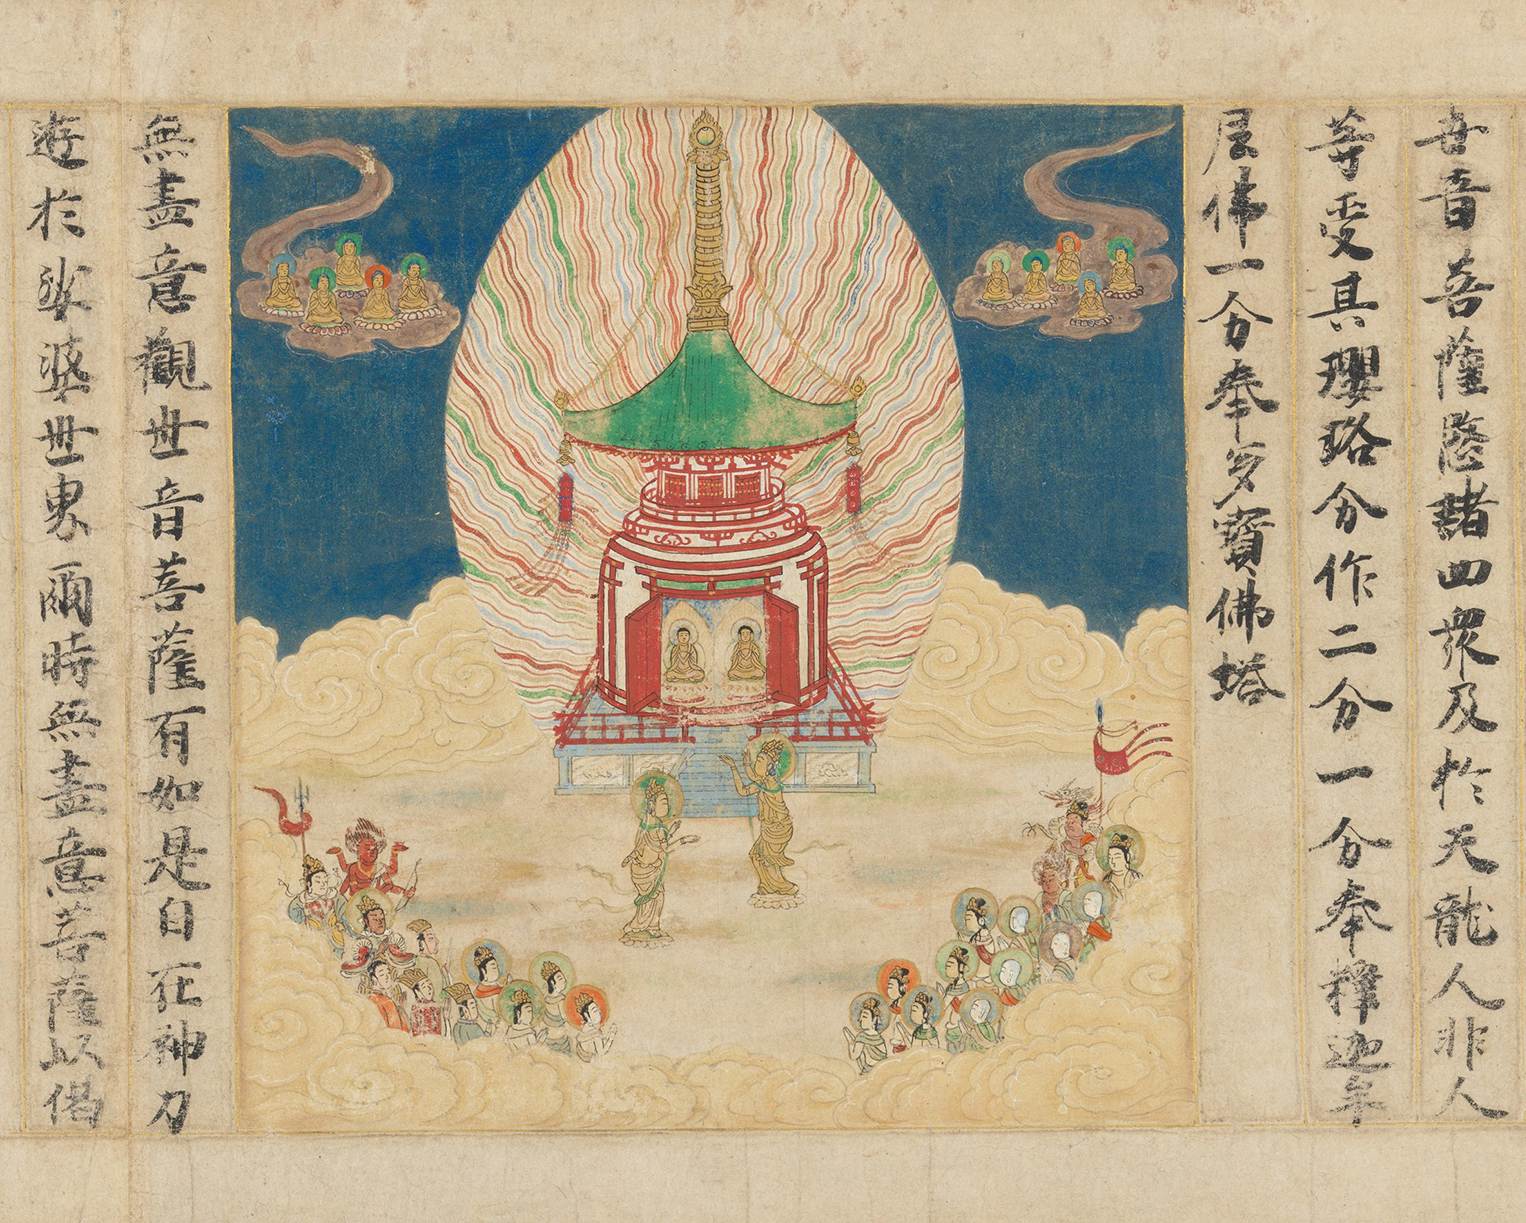 世音菩薩愍諸四衆及於天龍人非人
等受其瓔珞分作二分一分奉釋迦牟
尼佛一分奉多寶佛塔
無盡意觀世音菩薩有如是自在神力
遊於娑婆世界爾時無盡意菩薩以偈